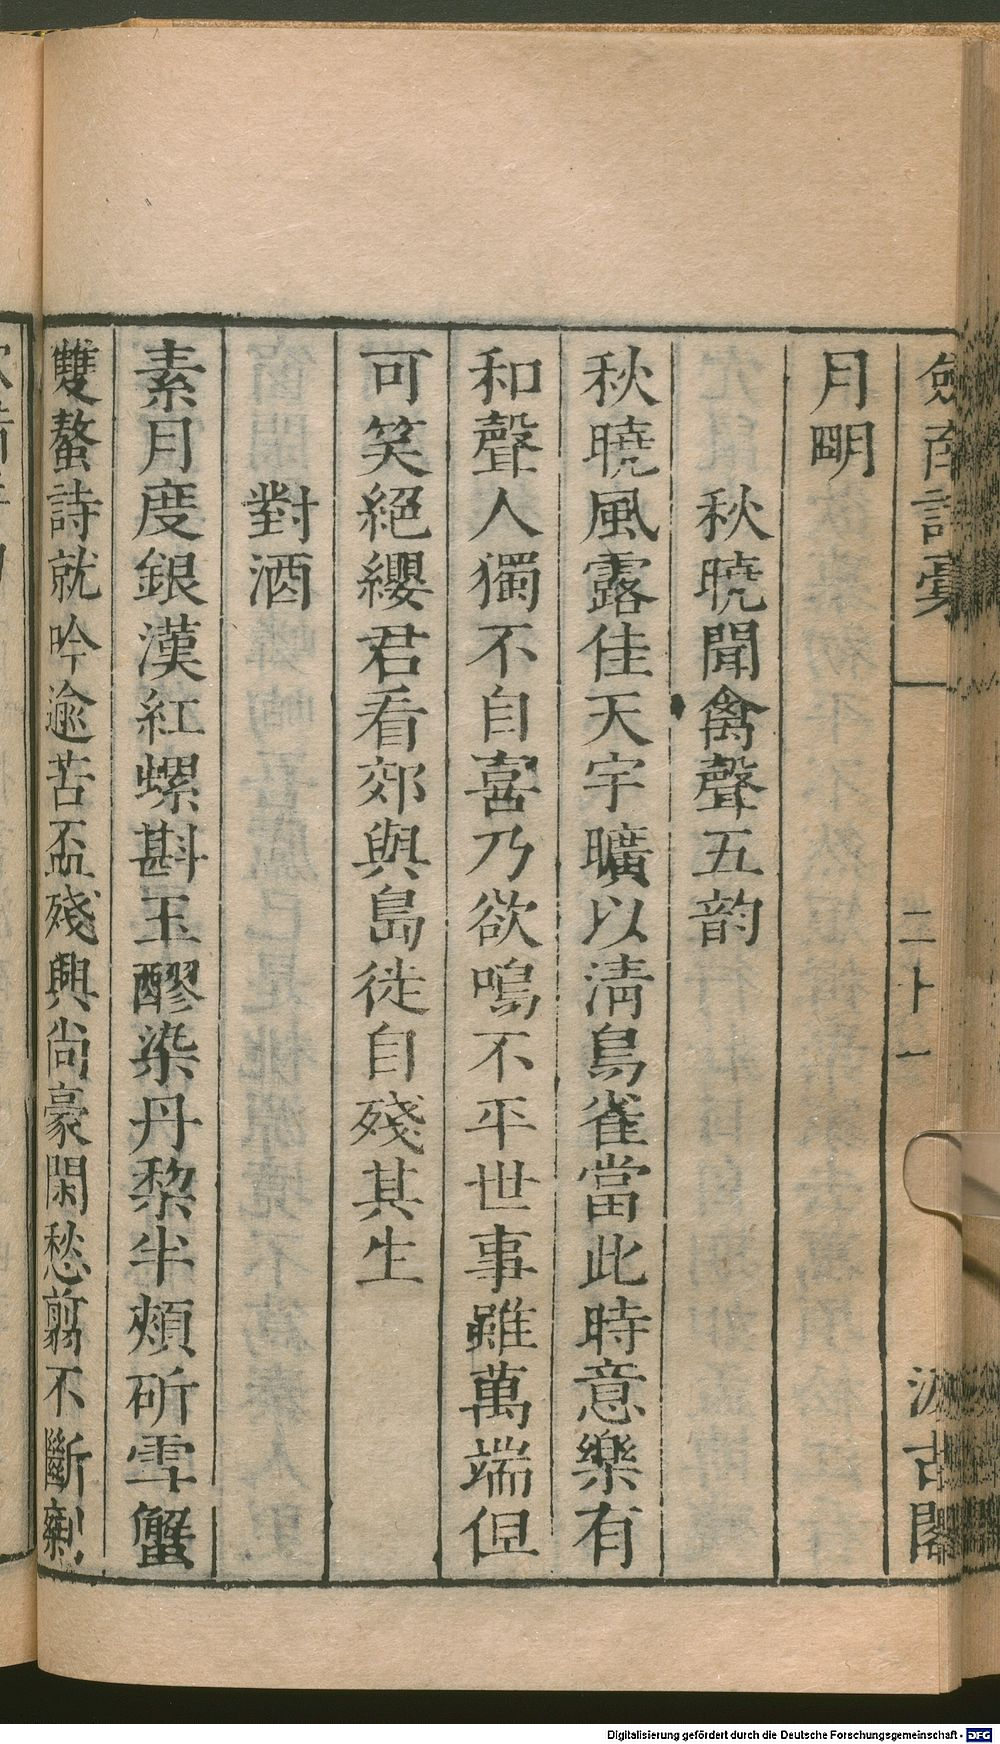 劍南詩稾
二十一
汲古閣
月明
秋曉聞禽聲五韵
秋曉風露佳天宇曠以清鳥雀當此時意樂有
和聲人獨不自喜乃欲鳴不平世事雖萬端但
可笑絕纓君看郊與島徒自殘其生
對酒
素月度銀漢紅螺斟玉醪染丹梨半頰斫雪蟹
雙螯詩就吟逾苦盃殘興尚豪閑愁翦不斷剩
Digitalisierung gefördert durch die Deutsche Forschungsgemeinschaft - DFG